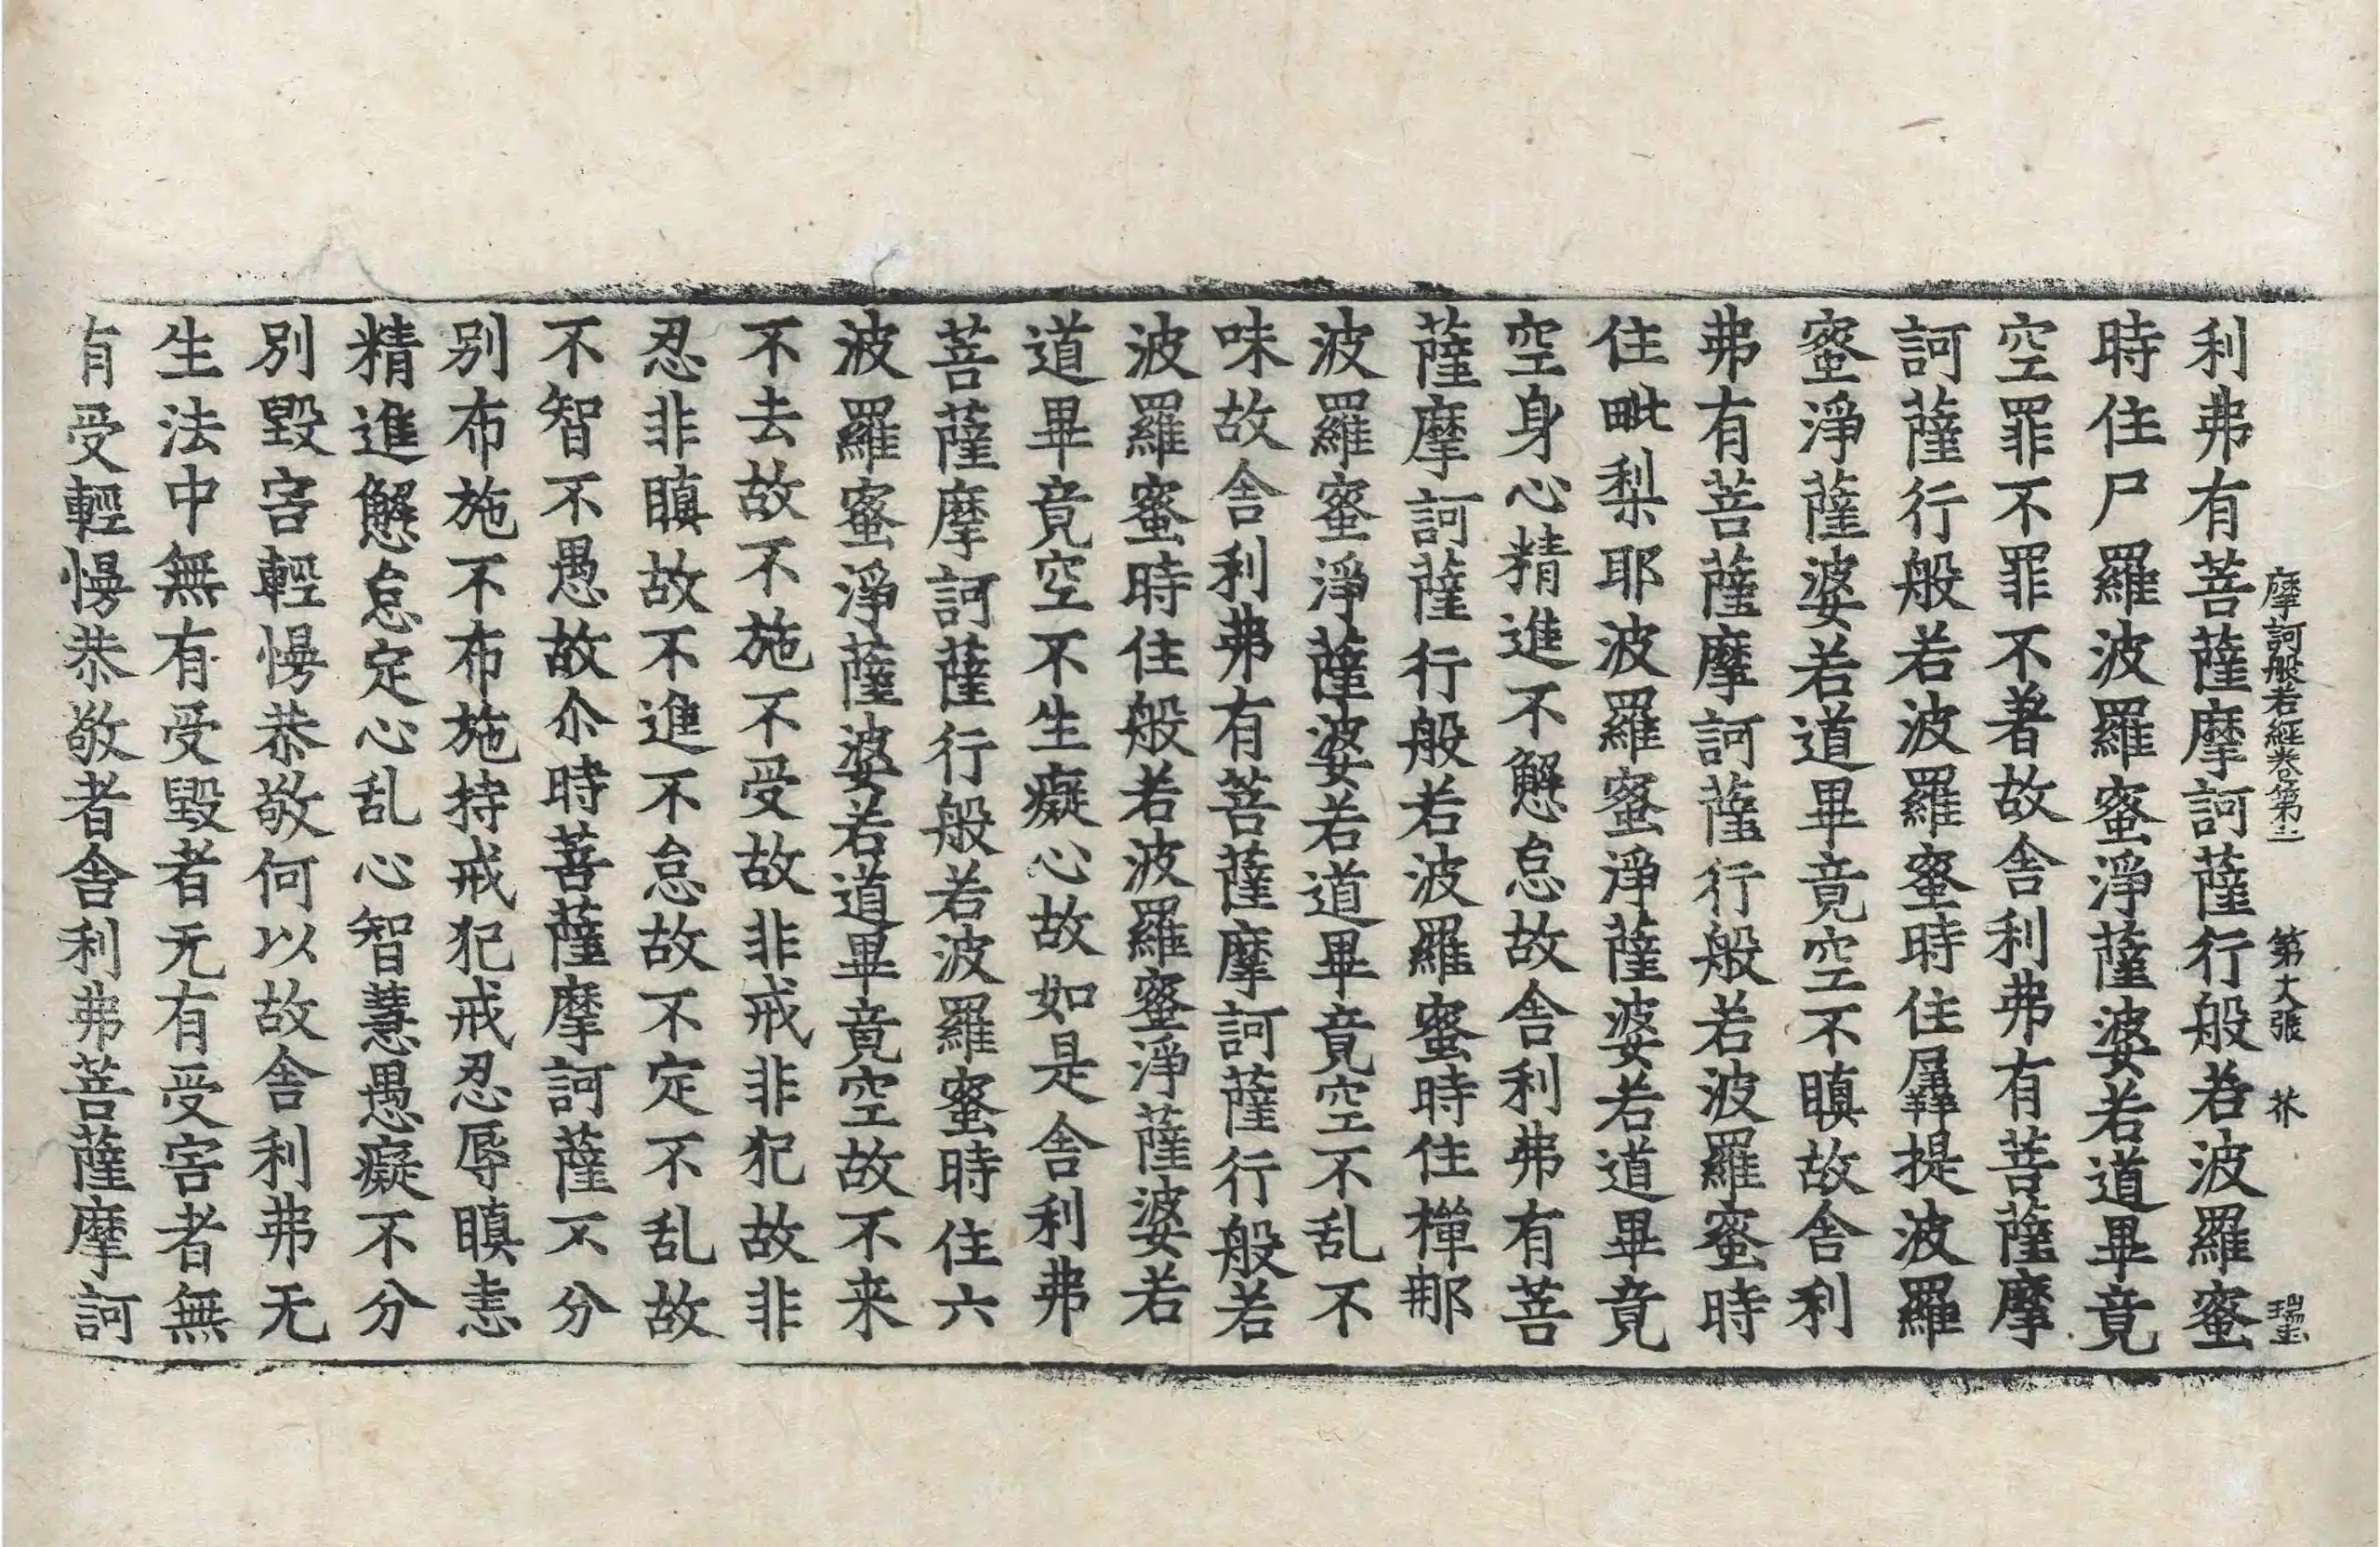 摩訶般若經卷第二　第六張　芥　瑞玉
利弗有菩薩摩訶薩行般若波羅蜜
時住尸羅波羅蜜淨薩婆若道畢竟
空罪不罪不著故舍利弗有菩薩摩
訶薩行般若波羅蜜時住羼提波羅
蜜淨薩婆若道畢竟空不瞋故舍利
弗有菩薩摩訶薩行般若波羅蜜時
住毗梨耶波羅蜜淨薩婆若道畢竟
空身心精進不懈怠故舍利弗有菩
薩摩訶薩行般若波羅蜜時住禪那
波羅蜜淨薩婆若道畢竟空不乱不
味故舍利弗有菩薩摩訶薩行般若
波羅蜜時住般若波羅蜜淨薩婆若
道畢竟空不生癡心故如是舍利弗
菩薩摩訶薩行般若波羅蜜時住六
波羅蜜淨薩婆若道畢竟空故不来
不去故不施不受故非戒非犯故非
忍非瞋故不進不怠故不定不乱故
不智不愚故尒時菩薩摩訶薩不分
別布施不布施持戒犯戒忍辱瞋恚
精進懈怠定心乱心智慧愚癡不分
別毀害輕慢恭敬何以故舍利弗无
生法中無有受毀者无有受害者無
有受輕慢恭敬者舍利弗菩薩摩訶